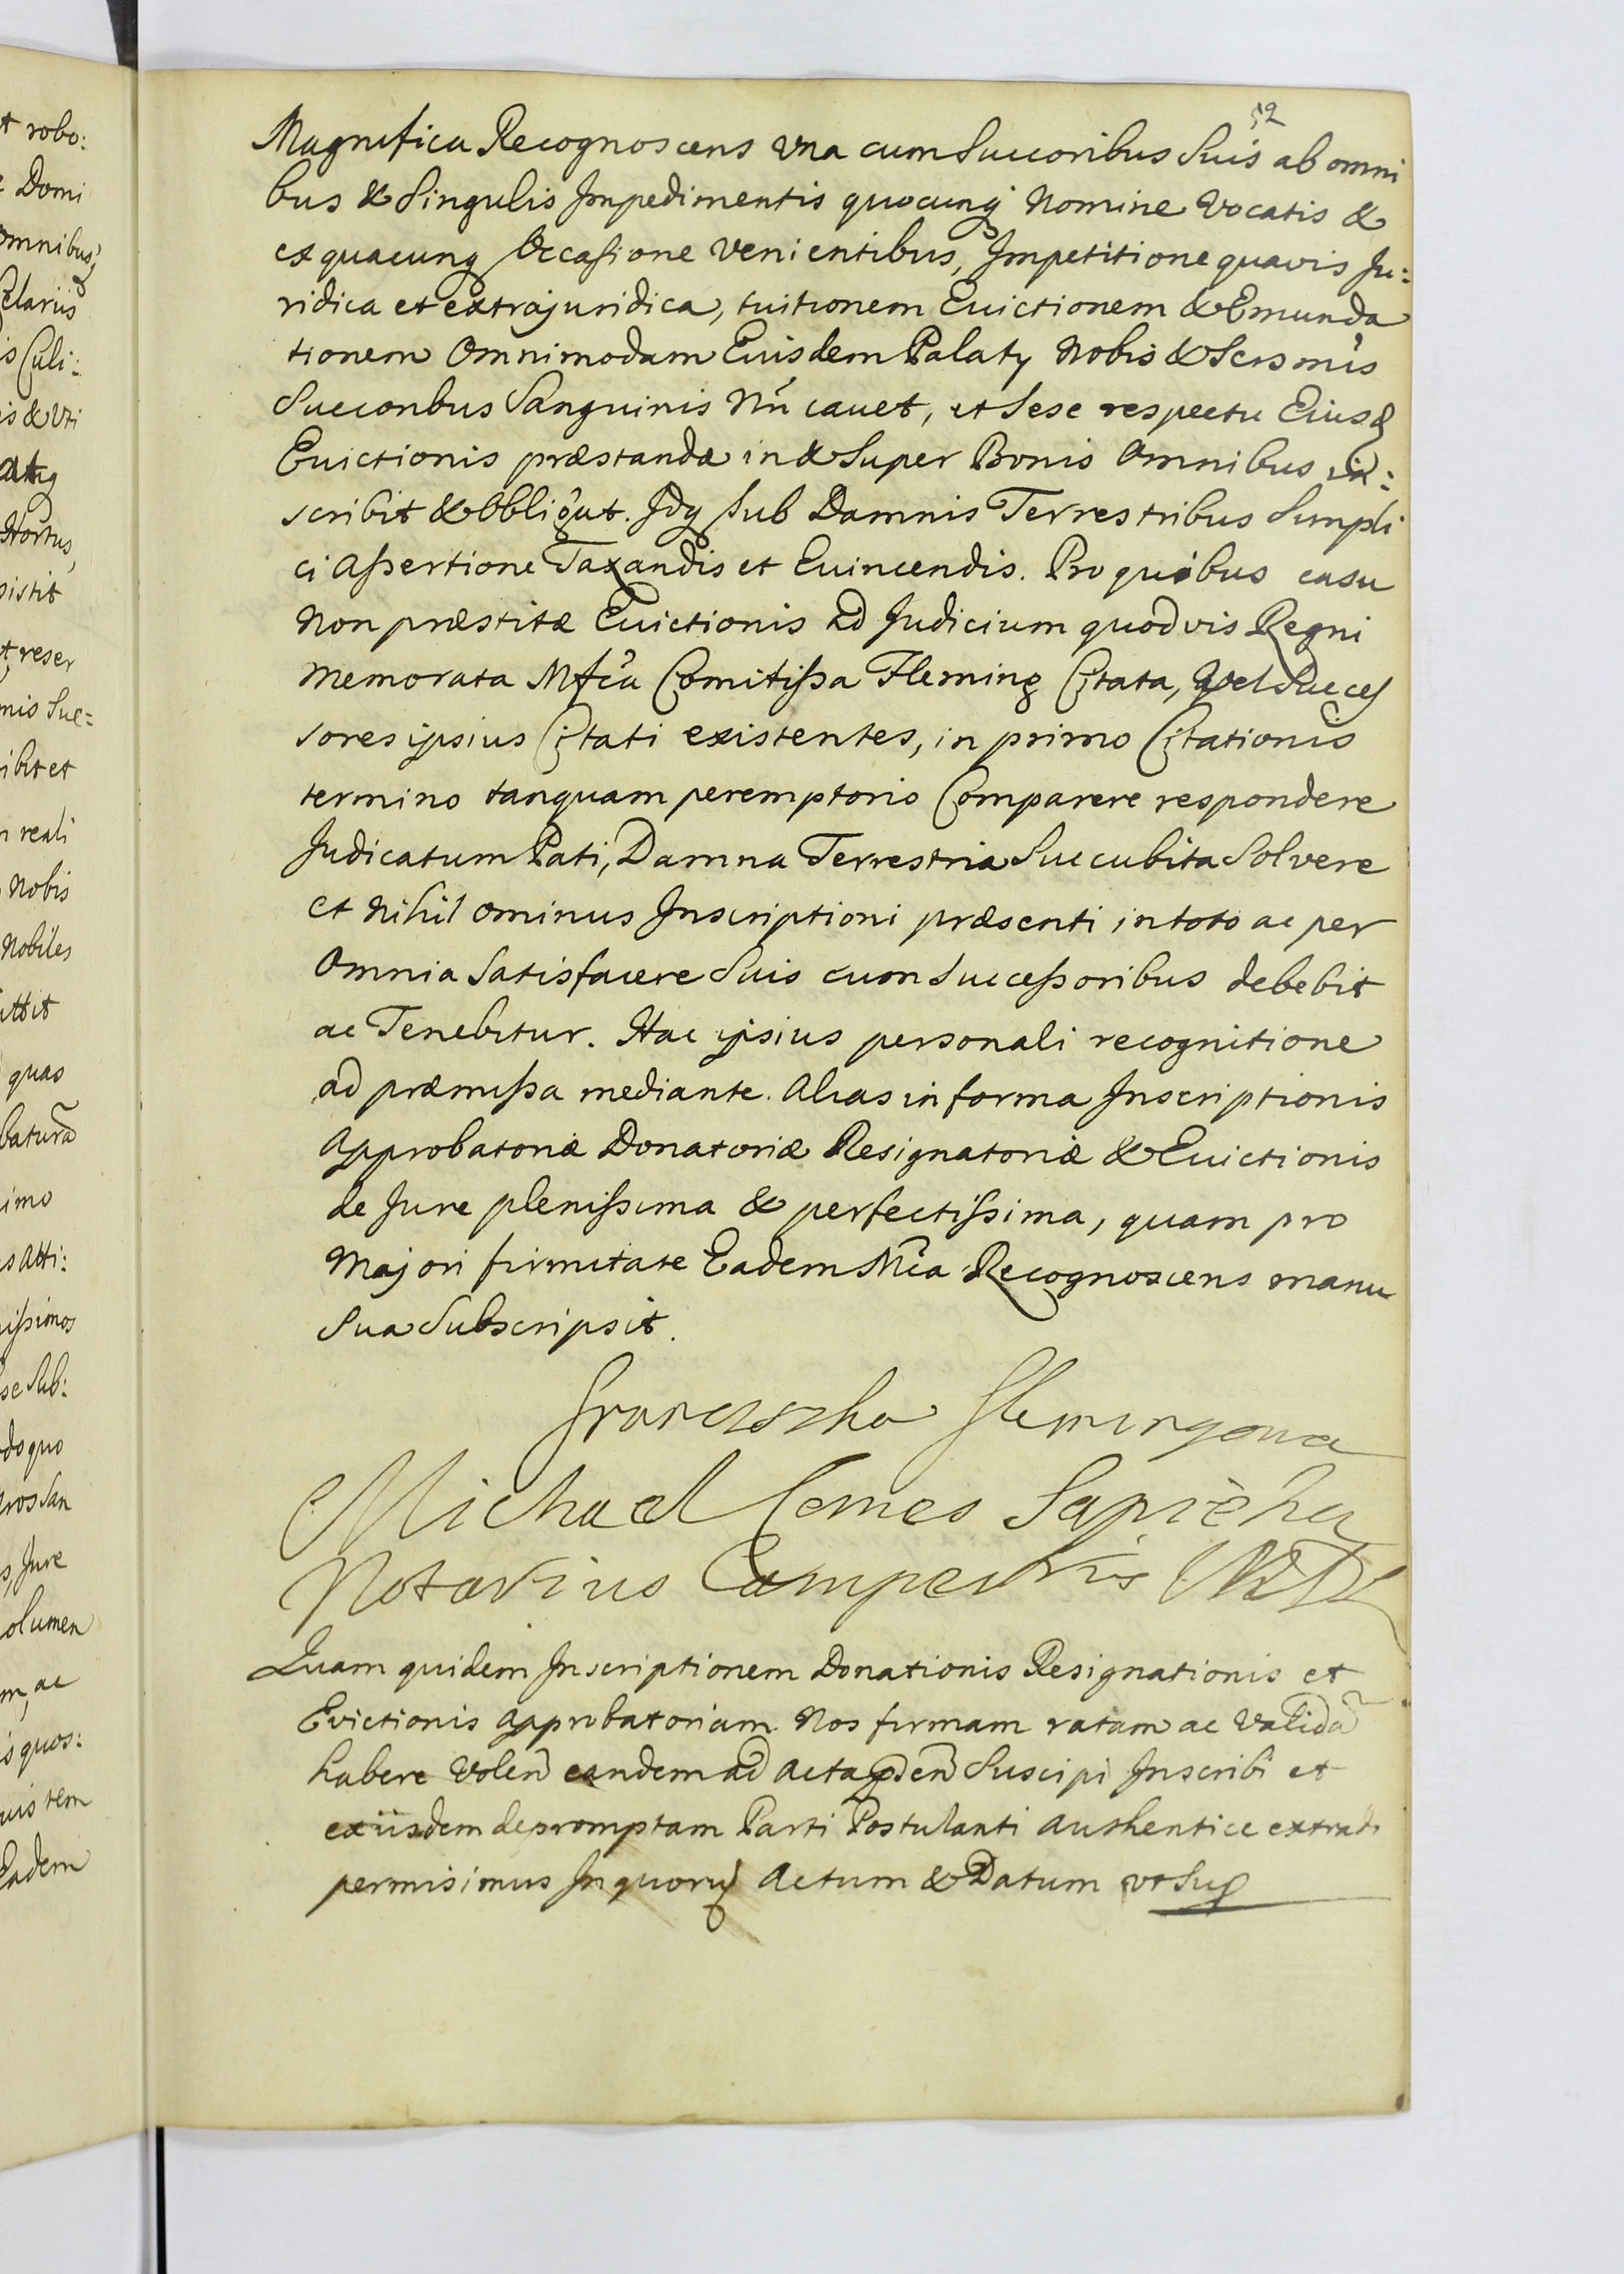 52
Magnifica Recognoscens una cum Succoribus Suis ab omni
bus & Singulis Impedimentis quocunq Nomine Vocatis &
ex quacunq Occasione venientibus, Impetitione quavis Ju:
ridica et extrajuridica, tuitionem Evictionem & Emunda
tionem Omnimodam Eiusdem Palaty Nobis & Scrsmis
Succoribus Sanguinis Nri cavet, et Sese respectu Eiusd
Evictionis præstandæ in & Super Bonis Omnibus in:
scribit & Obligat. Idq Sub Damnis Terrestribus Simpli
ci Assertione Taxandis et Evincendis. Pro quibus casu
Non præstitæ Evictionis ad Judicium quodvis Regni
memorata Mfca Comitissa Fleming Citata, vel Succes
sores ipsius Citati existentes, in primo Citationis
termino tanquam peremptorio Comparere respondere
Judicatum Pati, Damna Terrestria Succubita Solvere
et Nihil ominus Inscriptioni præsenti in toto ac per
Omnia Satisfacere Suis cum Successoribus debebit
ac Tenebitur. Hac ipsius personali recognitione
ad præmissa mediante. Alias in forma Inscriptionis
Approbatoriæ Donatoriæ Resignatoriæ & Evictionis
de Jure plenissima & perfectissima, quam pro
Majori firmitate Eadem Mca Recognoscens manu
Sua Subscripsit.
Franciszka Flemingowa
Michael Comes Sapieha
Notarius Campestris MDL
Quam quidem Inscriptionem Donationis Resignationis et
Evictionis Approbatoriam Nos firmam ratam ac Validã
habere Volen eandem ad Acta pden Suscipi Inscribi et
ex iisdem depromptam Parti Postulanti Authentice extradi
permisimus In quorũ Actum & Datum ut Sup